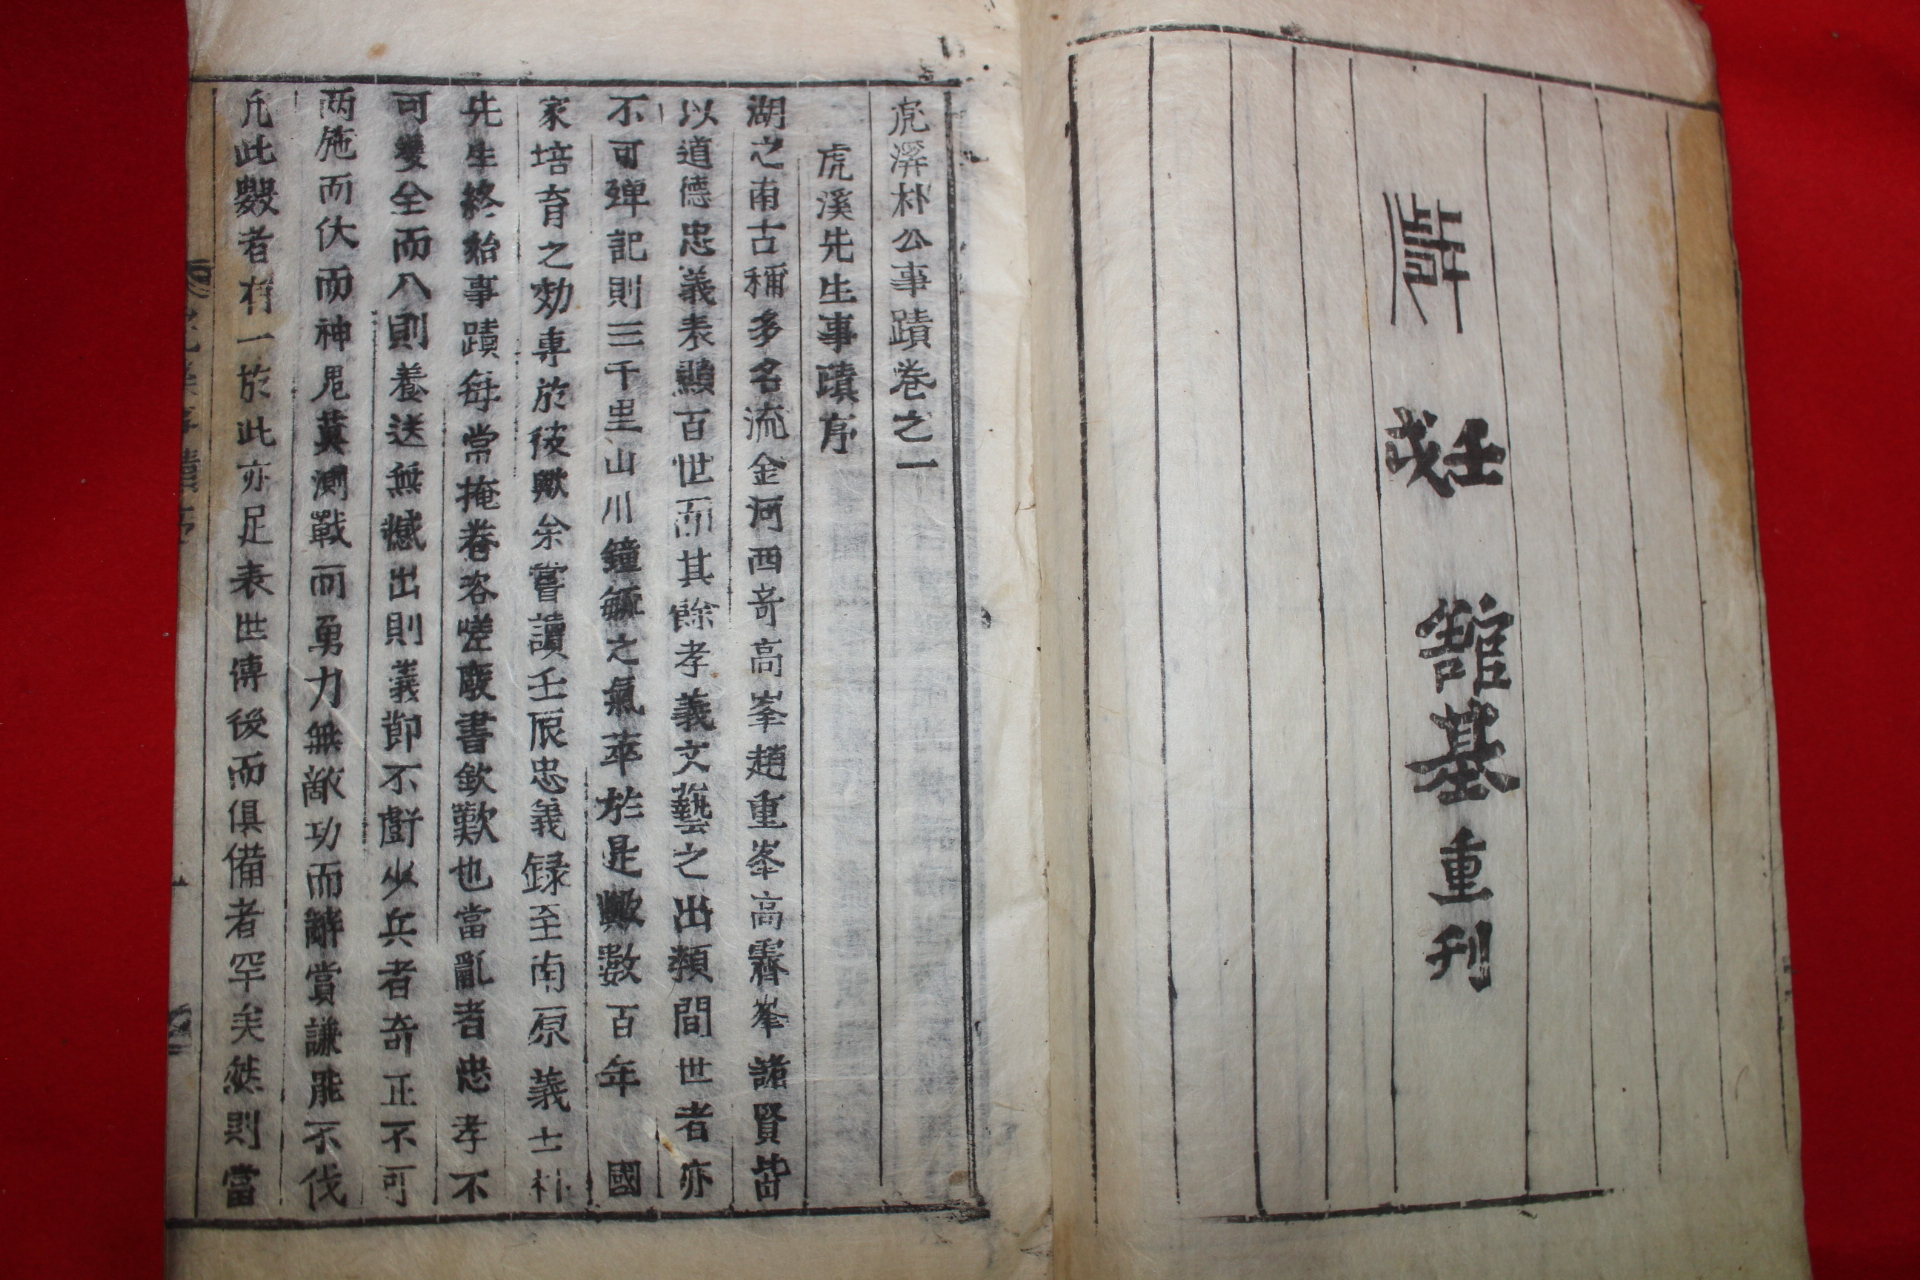 歲
壬戌
舘基重刊
虎溪朴公事蹟卷之一
虎溪先生事蹟序
湖之南古稱多名流金河西奇高峯趙重峯高霽峯諸賢皆
以道德忠義表顯百世而其餘孝義文藝之出類間世者亦
不可殫記則三千里山川鍾毓之氣萃於是歟數百年 國
家培育之効専於彼歟余嘗讀壬辰忠義録至南原義士朴
先生終始事蹟每常掩卷咨嗟廢書欽歎也當亂者忠孝不
可雙全而入則養送無憾出則義節不虧少兵者奇正不可
兩施而伏而神鬼莫測戰而勇力無敵功而辭賞謙能不伐
凡此數者有一於此亦足表世傳後而俱備者罕矣然則當